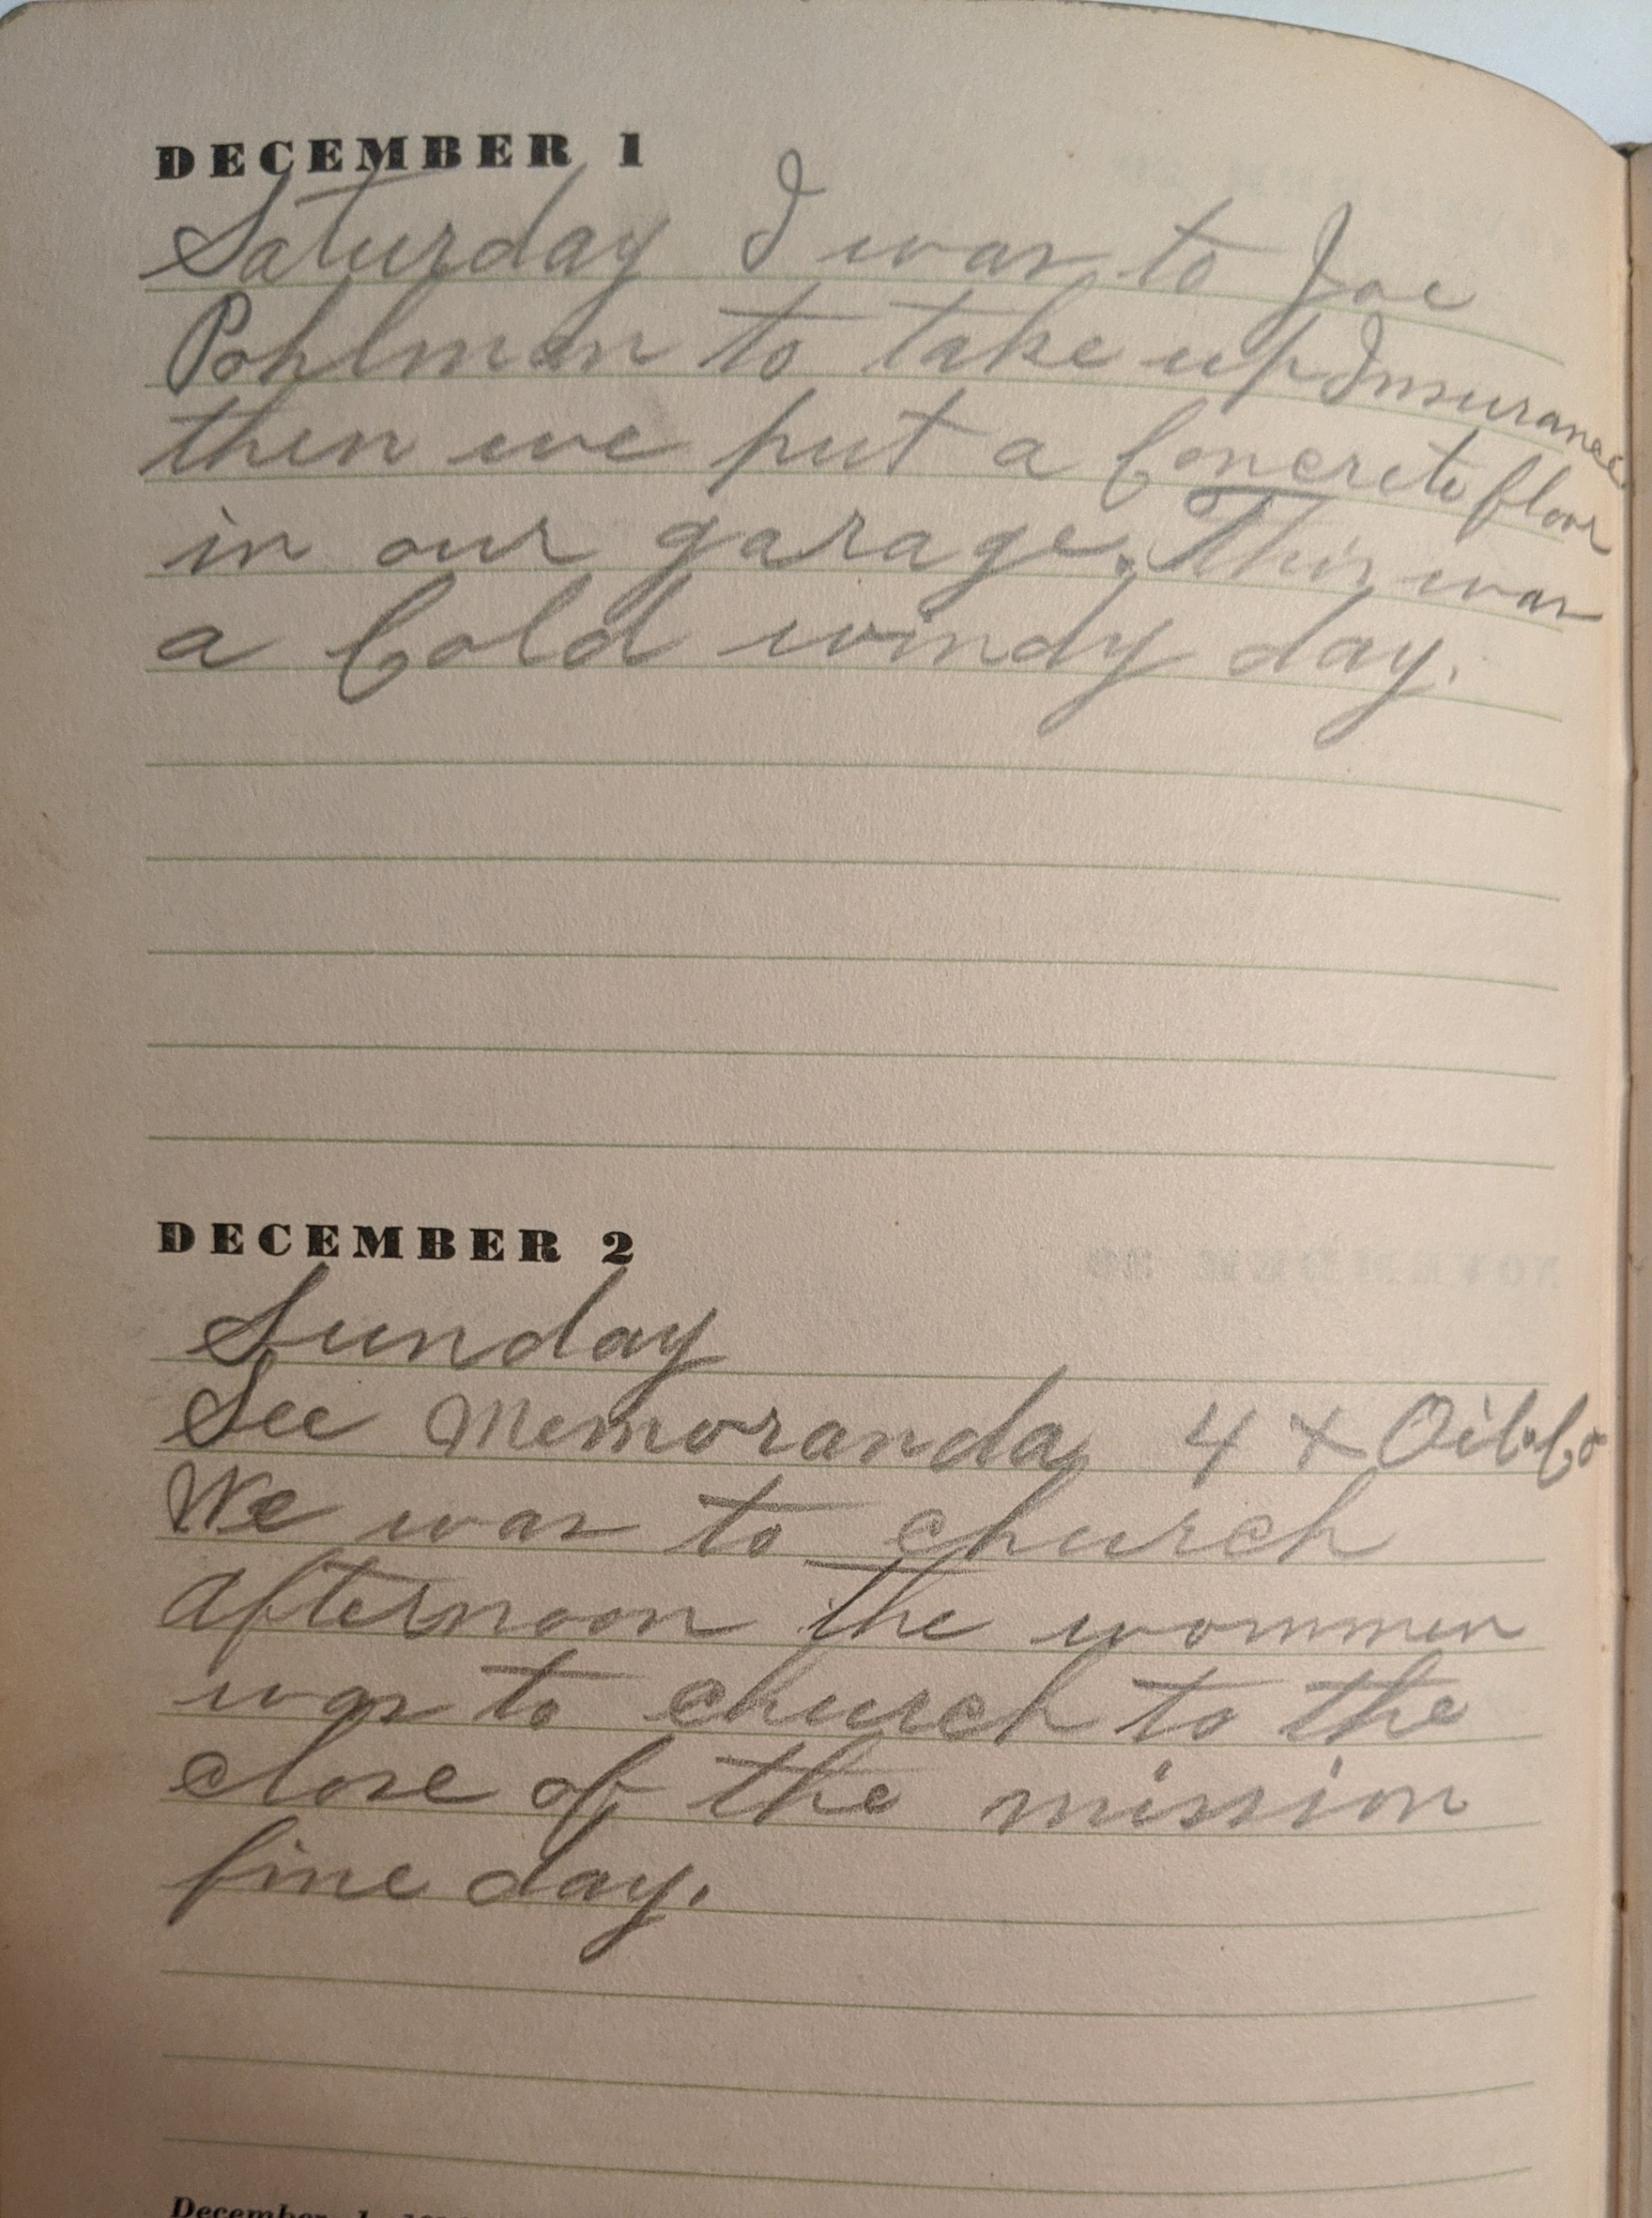 DECEMBER 1
Saturday I was to Joe
Pohlman to take up Insurance
then we put a Concrete floor
in our garage. This was
a Cold windy day.
DECEMBER 2
Sunday
See Memoranda 4 X Oil Co
We was to church
afternoon the wommen
was to church to the
close of the mission
fine day.
December 1